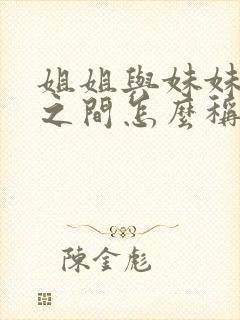 姐姐與妹妹
之間怎麼稱
陳金彪